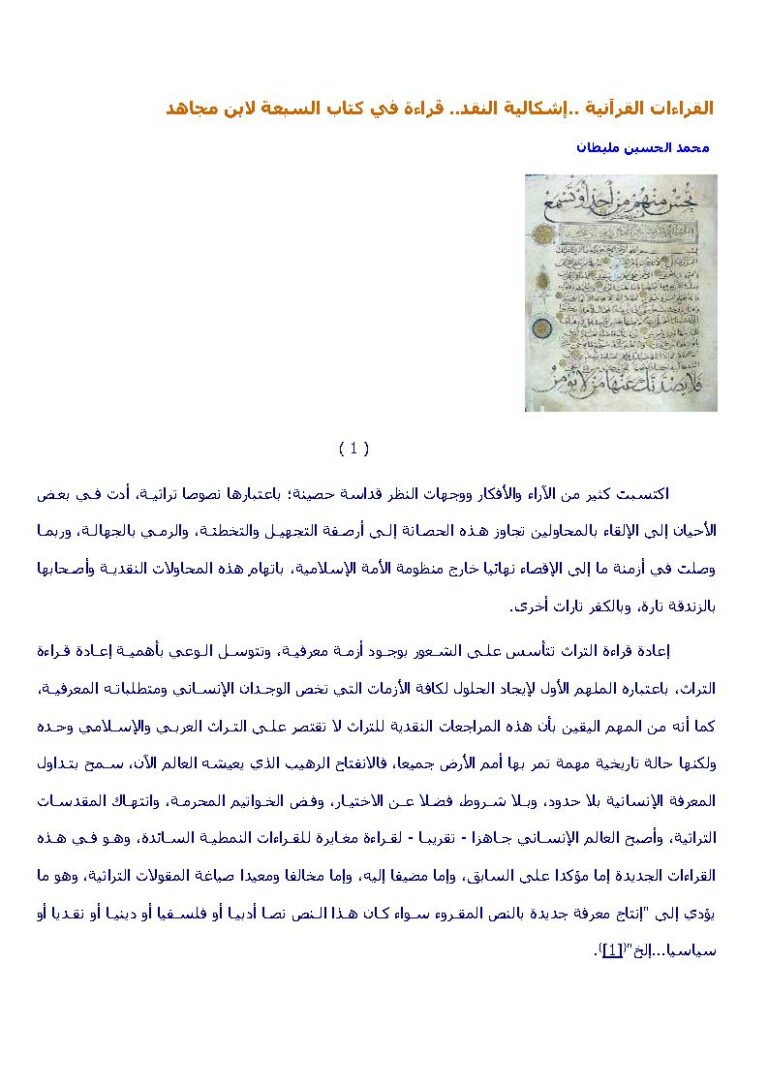 القراءات القرآنية ..إشكالية النقد.. قراءة في كتاب السبعة لابن مجاهد
محمد الحسين مليطان
تحس منهم من أحد أو تسمع
فلا يصدنك عنها من لا يؤمن
( 1 )
اكتسبت كثير من الآراء والأفكار ووجهات النظر قداسة حصينة؛ باعتبارها نصوصا تراثية، أدت في بعض
الأحيان إلى الإلقاء بالمحاولين تجاوز هذه الحصانة إلى أرصفة التجهيل والتخطئة، والرمي بالجهالة، وربما
وصلت في أزمنة ما إلى الإقصاء نهائيا خارج منظومة الأمة الإسلامية، باتهام هذه المحاولات النقدية وأصحابها
بالزندقة تارة، وبالكفر تارات أخرى.
إعادة قراءة التراث تتأسس على الشعور بوجود أزمة معرفية، وتتوسل الوعي بأهمية إعادة قراءة
التراث، باعتباره الملهم الأول لإيجاد الحلول لكافة الأزمات التي تخص الوجدان الإنساني ومتطلباته المعرفية،
كما أنه من المهم اليقين بأن هذه المراجعات النقدية للتراث لا تقتصر على التراث العربي والإسلامي وحده
ولكنها حالة تاريخية مهمة تمر بها أمم الأرض جميعا، فالانفتاح الرهيب الذي يعيشه العالم الآن، سمح بتداول
المعرفة الإنسانية بلا حدود، وبلا شروط، فضلا عن الاختيار، وفض الخواتيم المحرمة، وانتهاك المقدسات
التراثية، وأصبح العالم الإنساني جاهزا - تقريبا - لقراءة مغايرة للقراءات النمطية السائدة، وهو في هذه
القراءات الجديدة إما مؤكدا على السابق، وإما مضيفا إليه، وإما مخالفا ومعيدا صياغة المقولات التراثية، وهو ما
يؤدي إلى "إنتاج معرفة جديدة بالنص المقروء سواء كان هذا النص نصا أدبيا أو فلسفيا أو دينيا أو نقديا أو
سياسيا...إلخ"([1]).